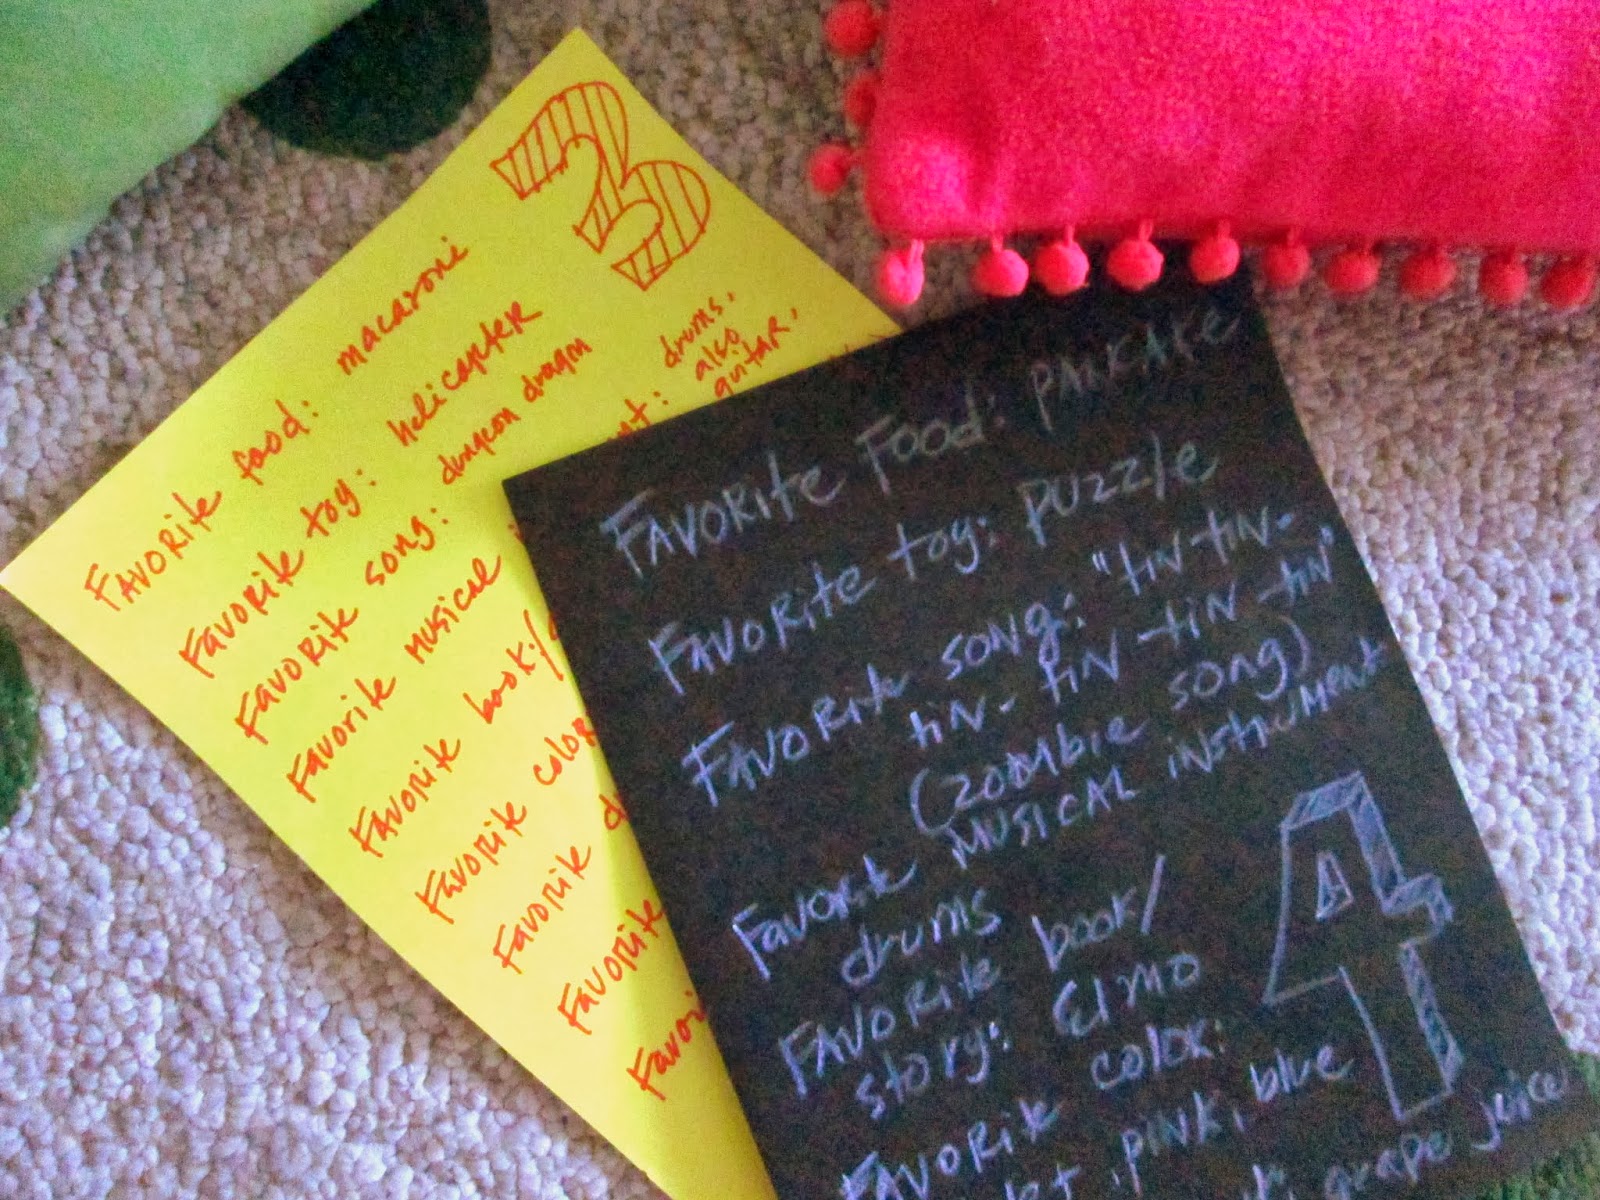 3
FAVORITE food: macaroni
FAVORITE toy: helicopter
FAVORITE song: dungeon dragon
FAVORITE MUSICAL
drums,
also
guitar,
FAVORITE book/
FAVORITE color
FAVORITE
FAVORITE
FAVORITE Food: PANKAKE
FAVORITE toy: PUZZLE
FAVORITE SONG: "tiN-tiN-
tiN-tiN-tiN-tiN"
(zombie song)
FAVORITE MUSICAL iNStrUMENt
drums
FAVORITE book/
story: Elmo
FAVORITE color:
, PiNK, blue
grape juice
4